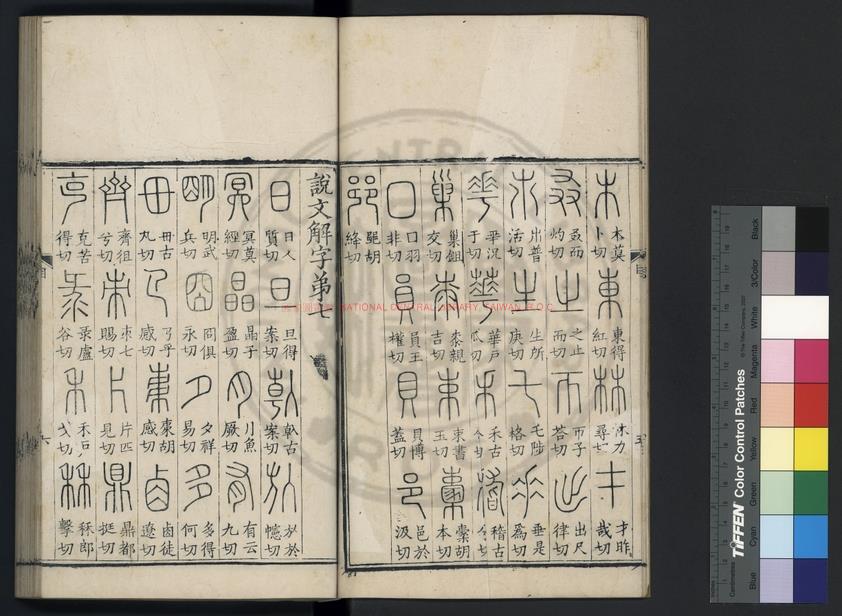 木莫卜切
東得紅切
林力尋切
才昨哉切
叒而灼切
之止而切
帀子荅切
出尺律切
𣎵普活切
生所庚切
乇陟格切
垂是為切
𠌶況于切
華戶瓜切
禾古兮切
稽古兮切
巢鉏交切
桼親吉切
束書玉切
㯻胡本切
囗羽非切
員王權切
貝博蓋切
邑於汲切
𨛜胡絳切
說文解字第七
日人質切
旦得案切
倝古案切
㫃於幰切
冥莫經切
晶子盈切
月魚厥切
有云九切
明武兵切
囧俱永切
夕祥易切
多得何切
毌古丸切
𢎘乎感切
𣐺胡感切
卤徒遼切
齊徂兮切
朿七賜切
片匹見切
鼎都挺切
克苦得切
彔盧谷切
禾戶戈切
秝郎擊切
六
NATIONAL CENTRAL LIBRARY, TAIWAN R.O.C
TIFFEN Color Control Patches
© The Tiffen Company, 2007
Centimetres
Blue
Cyan
Green
Yellow
Red
Magenta
White
3/Color
Black